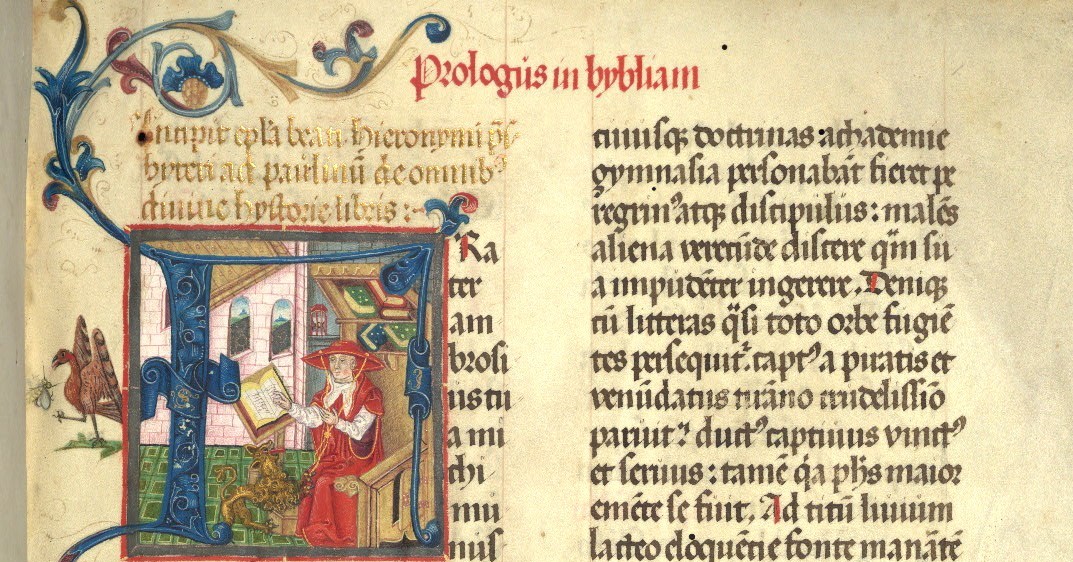 Prologus in bybliam
Incipit ep̄la beati Hieronymi p̄s-
byteri ad paulinū de omnibꝰ
diuine hystorie libris :~
FRa
ter
am
brosi
us tu
a mi
chi
mu
nus
cuiusqꝫ doctrinas achademie
gymnasia personabāt fieret pe
regrinꝰ atqꝫ discipulus: malēs
aliena verecūde discere q̄m su
a impudēter ingerere. Deniqꝫ
cū litteras q̄si toto orbe fugiē
tes persequit᷑. captꝰ a piratis et
venūdatus tirāno crudelissīo
paruit: ductꝰ captiuus vinctꝰ
et seruus: tamē q̄a ph̄s maior
emēte se fuit. Ad titū liuium
lacteo eloquētie fonte manātē